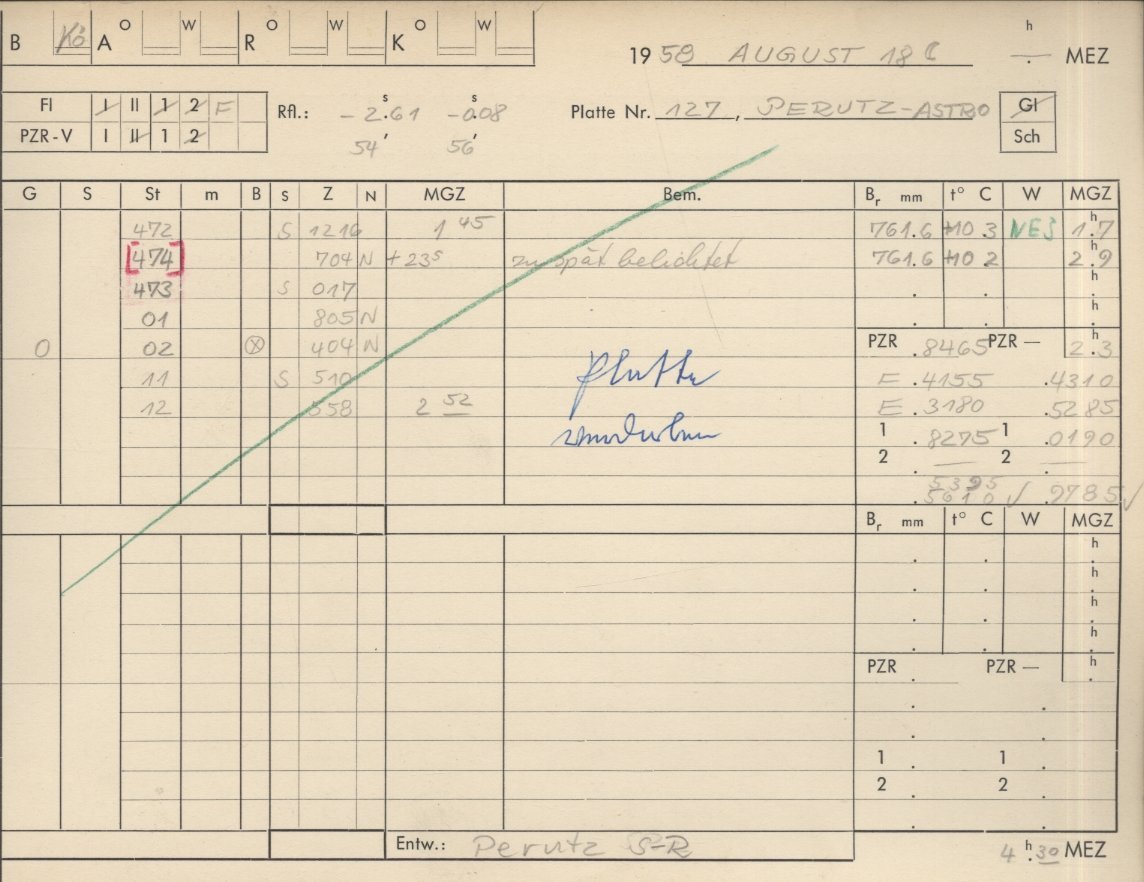 B Kö A O W R O W K O W
h
19 58 AUGUST 18 . MEZ
FI I II 1 2 F
PZR-V I II 1 2
Rfl.: - 2.61 s - 0.08 s
54' 56'
Platte Nr. 127, PERUTZ-ASTRO
Gl
Sch
G S St m B S Z N MGZ Bem. Br mm t° C W MGZ
472 S 1216 1 45 761.6 +10 3 NE3 1.7 h
[474] 704 N +23s zu spät belichtet 761.6 +10 2 2.9 h
473 S 017 . . . h
01 805 N . . . h
0 02 ⊗ 404 N PZR .8465 PZR — 2.3 h
11 S 510 Platte E .4155 .4310
12 658 2 52 E .3180 .5285
verdorben 1 .8275 1 .0190
2 — 2 —
.5395
.5610 ✓ .9785 ✓
Br mm t° C W MGZ
. . . h
. . . h
. . . h
. . . h
PZR . PZR — . h
. .
. .
1 . 1 .
2 . 2 .
. .
Entw.: Perutz S-R 4 h.30 MEZ